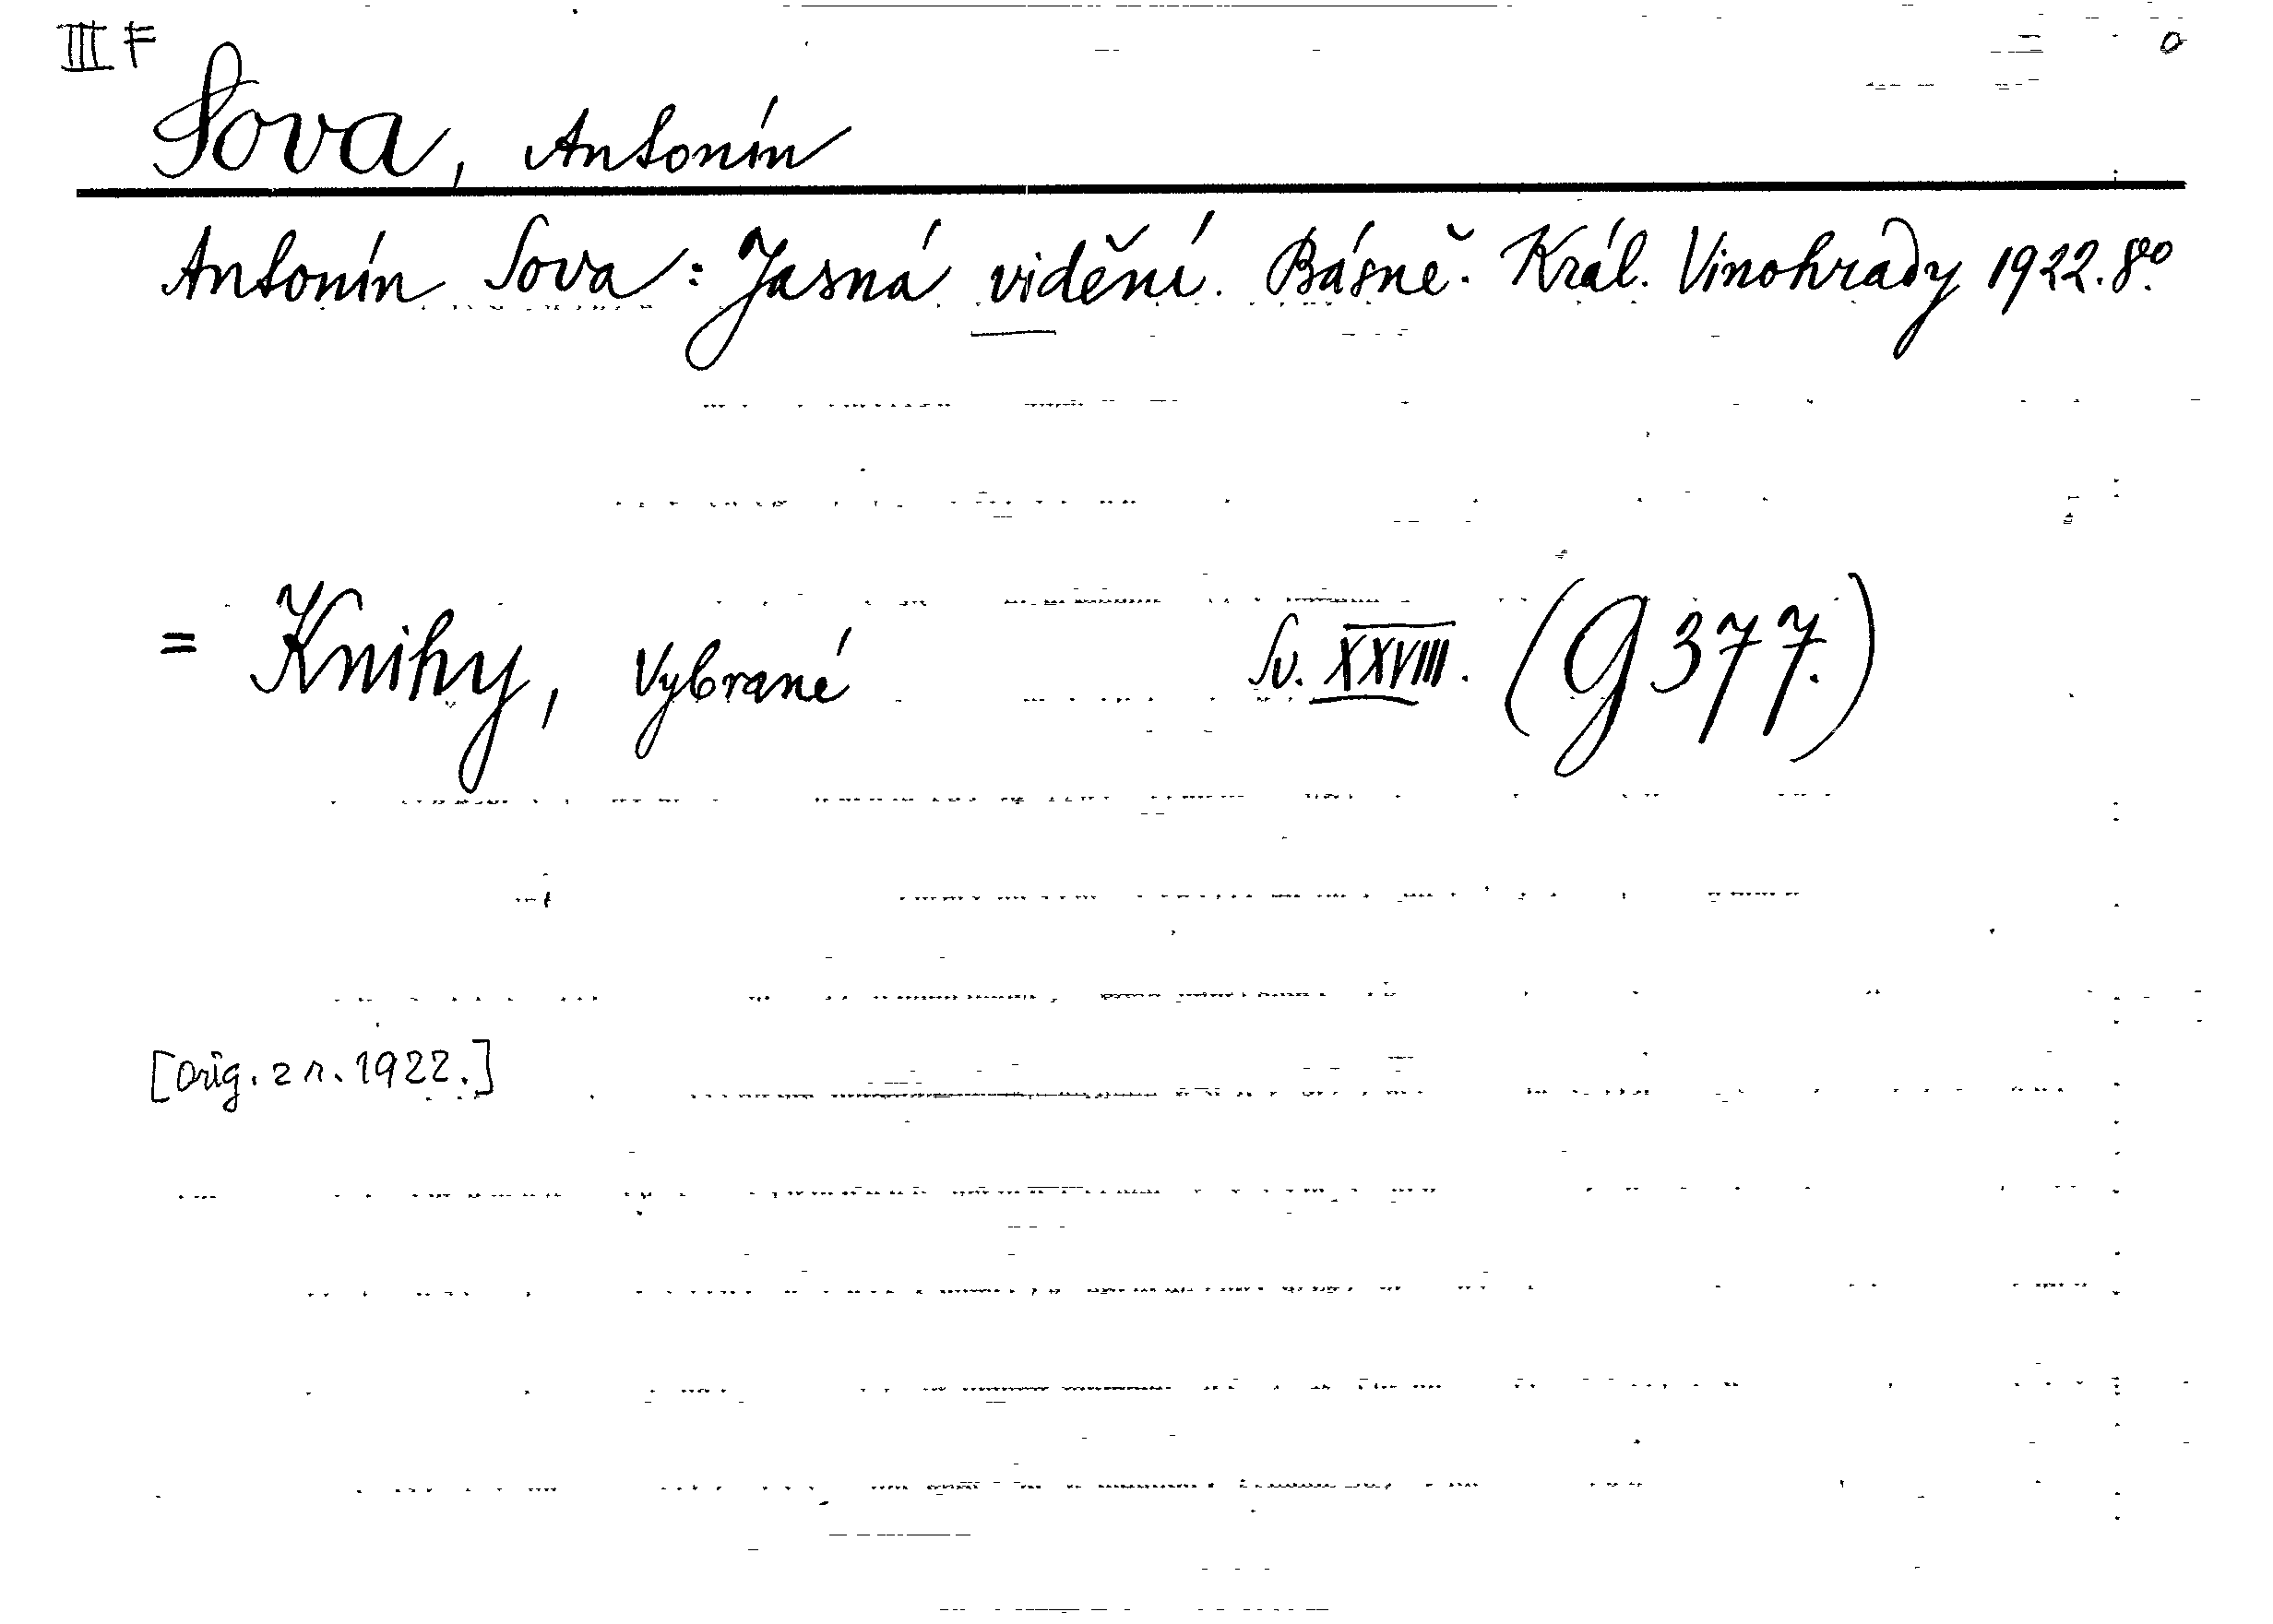 III F
Sova, Antonín
Antonín Sova: Jasná vidění. Básně. Král. Vinohrady 1922. 8°.
= Knihy, Vybrané Sv. XXVIII. (G 377.)
[Orig. z r. 1922.]